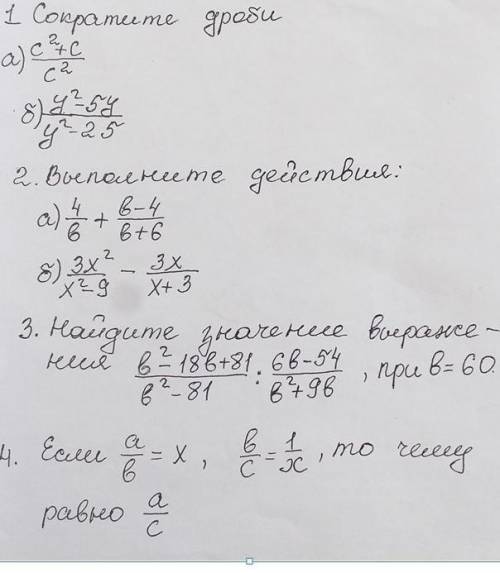 1 Сократите дроби
а) (c²+c)/c²
б) (y²-5y)/(y²-25)
2. Выполните действия:
а) 4/в + (в-4)/(в+6)
б) 3x²/(x²-9) - 3x/(x+3)
3. Найдите значение выраже-
ния (в²-18в+81)/(в²-81) : (6в-54)/(в²+9в), при в=60.
4. Если a/в = x, в/c = 1/x, то чему
равно a/c